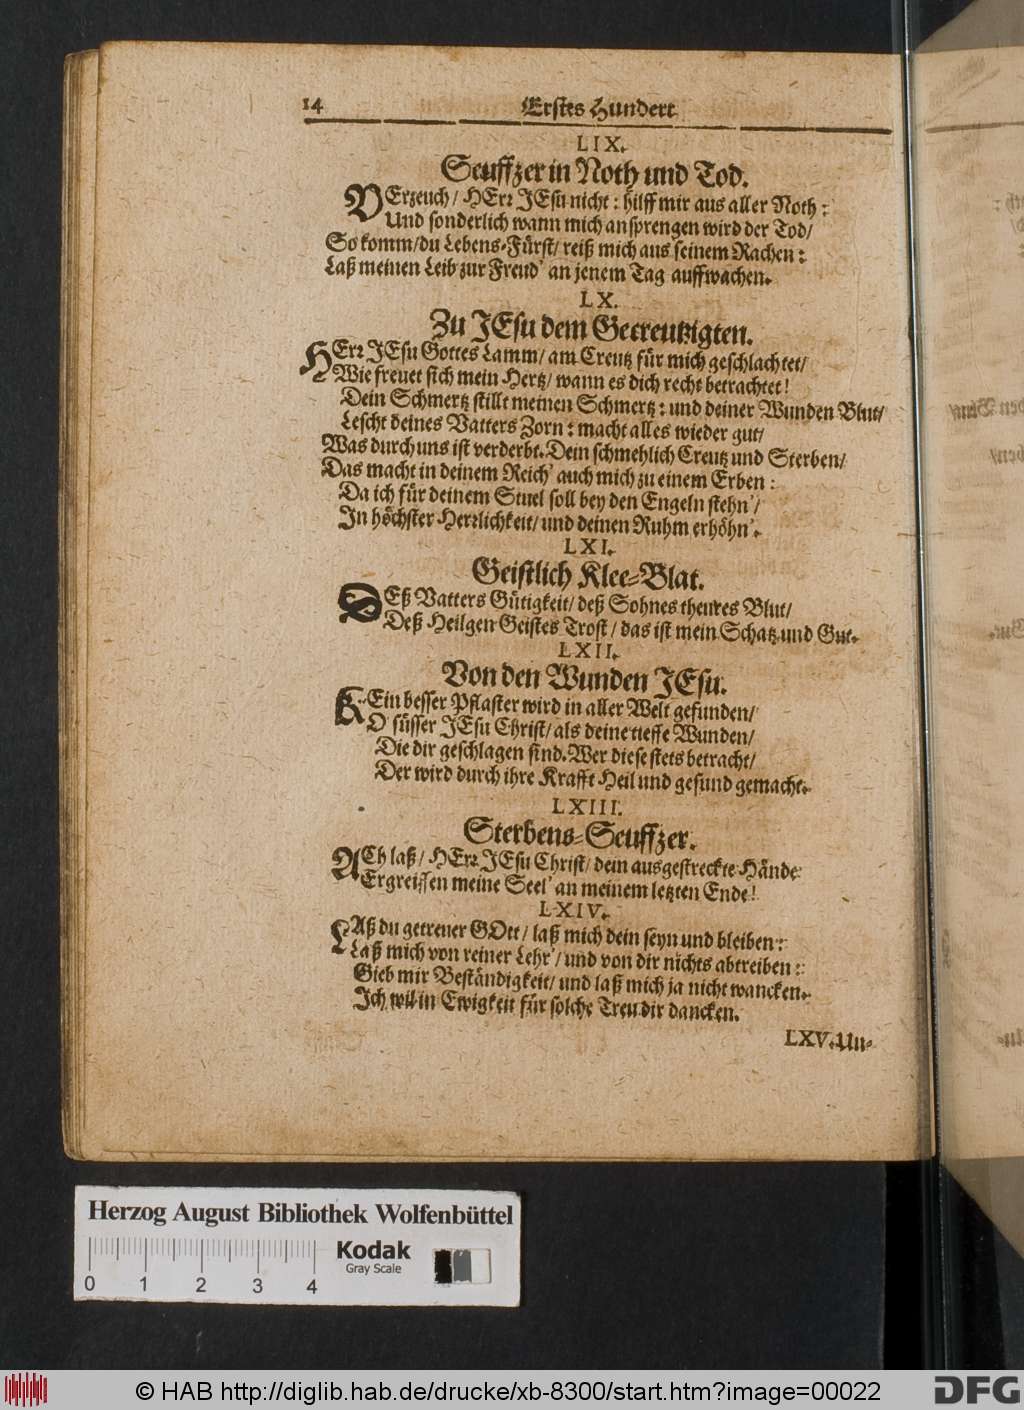 14 Erstes Hundert
LIX.
Seuffzer in Noth und Tod.
VErzeuch/ HErr JEsu nicht: hilff mir aus aller Noth:
Und sonderlich wann mich ansprengen wird der Tod/
So komm/du Lebens-Fürst/ reiß mich aus seinem Rachen:
Laß meinen Leib zur Freud' an jenem Tag auffwachen.
LX.
Zu JEsu dem Gecreutzigten.
HErr JEsu Gottes Lamm/ am Creutz für mich geschlachtet/
Wie freuet sich mein Hertz/ wann es dich recht betrachtet!
Dein Schmertz stillt meinen Schmertz: und deiner Wunden Blut/
Lescht deines Vatters Zorn: macht alles wieder gut/
Was durch uns ist verderbt. Dein schmehlich Creutz und Sterben/
Das macht in deinem Reich' auch mich zu einem Erben:
Da ich für deinem Stuel soll bey den Engeln stehn'/
In höchster Herrlichkeit/ und deinen Ruhm erhöhn'.
LXI.
Geistlich Klee-Blat.
DEß Vatters Gütigkeit/ deß Sohnes theures Blut/
Deß Heilgen Geistes Trost/ das ist mein Schatz und Gut.
LXII.
Von den Wunden JEsu.
KEin besser Pflaster wird in aller Welt gefunden/
O süsser JEsu Christ/ als deine tieffe Wunden/
Die dir geschlagen sind. Wer diese stets betracht/
Der wird durch ihre Krafft Heil und gesund gemacht.
LXIII.
Sterbens-Seuffzer.
ACh laß/ HErr JEsu Christ/ dein ausgestreckte Hände
Ergreiffen meine Seel' an meinem letzten Ende!
LXIV.
LAß du getreuer GOtt/ laß mich dein seyn und bleiben:
Laß mich von reiner Lehr'/ und von dir nichts abtreiben:
Gieb mir Beständigkeit/ und laß mich ja nicht wancken.
Ich wil in Ewigkeit für solche Treu dir dancken.
LXV. Un-
Herzog August Bibliothek Wolfenbüttel
Kodak
Gray Scale
0 1 2 3 4
© HAB http://diglib.hab.de/drucke/xb-8300/start.htm?image=00022
DFG